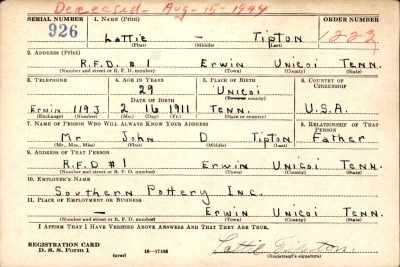 Deceased - Aug-15-1944
SERIAL NUMBER 1. NAME (Print) ORDER NUMBER
926 Lattie - Tipton 1223
(First) (Middle) (Last)
2. ADDRESS (Print)
R.F.D. #1 Erwin Unicoi Tenn.
(Number and street or R. F. D. number) (Town) (County) (State)
3. TELEPHONE 4. AGE IN YEARS 5. PLACE OF BIRTH 6. COUNTRY OF CITIZENSHIP
29 Unicoi
DATE OF BIRTH (Town or county)
Erwin 119J 2 16 1911 Tenn. U.S.A.
(Exchange) (Number) (Mo.) (Day) (Yr.) (State or country)
7. NAME OF PERSON WHO WILL ALWAYS KNOW YOUR ADDRESS 8. RELATIONSHIP OF THAT PERSON
Mr John D Tipton Father
(Mr., Mrs., Miss) (First) (Middle) (Last)
9. ADDRESS OF THAT PERSON
R.F.D #1 Erwin Unicoi Tenn.
(Number and street or R. F. D. number) (Town) (County) (State)
10. EMPLOYER'S NAME
Southern Pottery Inc.
11. PLACE OF EMPLOYMENT OR BUSINESS
- Erwin Unicoi Tenn.
(Number and street or R. F. D. number) (Town) (County) (State)
I AFFIRM THAT I HAVE VERIFIED ABOVE ANSWERS AND THAT THEY ARE TRUE.
REGISTRATION CARD
D. S. S. Form 1 16-17105 Lattie Tipton
(over) (Registrant's signature)